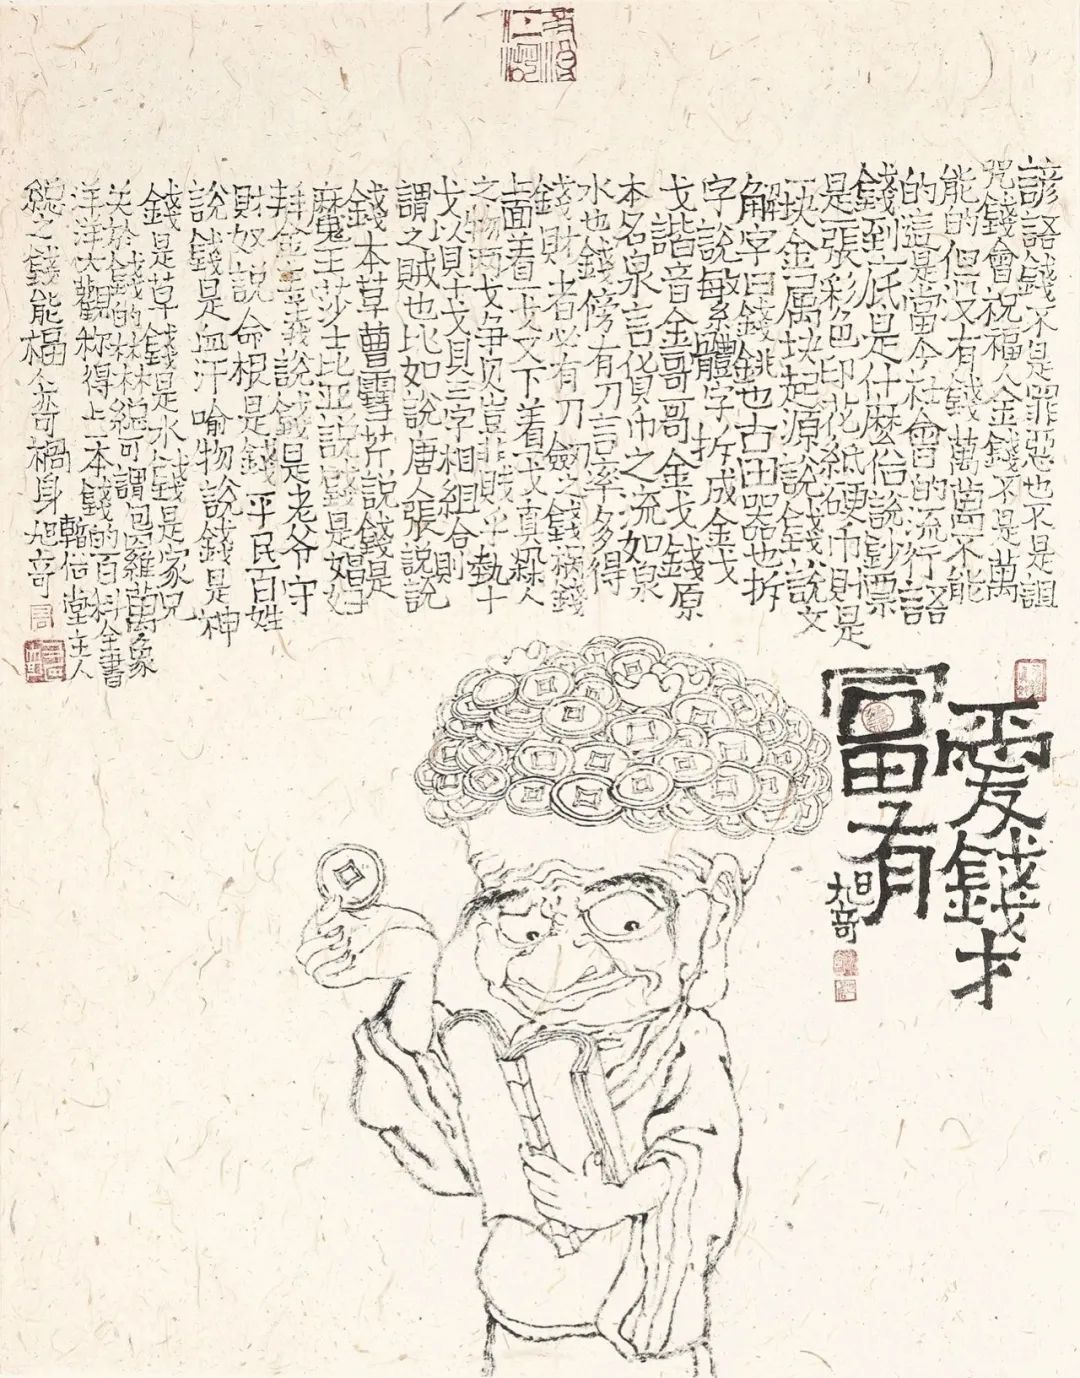 諺語錢不是罪惡也不是詛
咒錢會祝福人金錢不是萬
能的但没有錢萬萬不能
的這是當今社會的流行語
錢到底是什麽俗說鈔票
是一張彩色印花紙硬巾財是
一块金属块起源說錢說文
解字曰錢銚也古田器也拆
字說每系體字拆成金戈
戈諧音金哥哥金戈錢原
本名泉言貨巾之流如泉
水也錢傍有刀言率多得
錢財者必有刀劍之錢柄錢
上面差一戈又下差一戈真殺人
之物两戈争贝豈非贱乎執十
戈以貝十戈貝三字相組合則
謂之賊也比如說唐人張說說
錢本草曹雪芹說錢是
魔王莎士比亚說錢是娼妇
拜金主義說錢是老爷守
財奴說命根是錢平民百姓
說錢是血汗喻物說錢是神
錢是草錢是水錢是家况
关於錢的林林緫緫可謂包羅萬象
洋洋大觀称得上一本錢的百科全書
緫之錢能福人亦奇禍身旭奇
韜佑堂主人
愛錢才
富有
旭奇